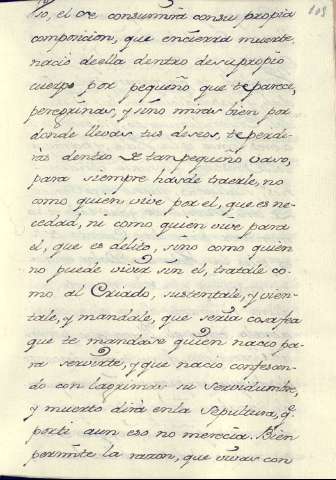 103
so, el q̃ consumirá con su propia
composicion, que encierra muerte,
nacio de ella dentro de su propio
cuerpo por pequeño que te parece,
peregrinas, y sino miras bien por
donde llevas tus deseos, te perde-
rás dentro de tan pequeño vaso,
para siempre has de traerle, no
como quien vive por el, que es ne-
cedad, ni como quien vive para
el, que es delito, sino como quien
no puede vivir sin el, tratale co-
mo al Criado, sustentale, y vien-
tale, y mandale, que sería cosa fea
que te mandase quien nacio pa-
ra servirte, y que nacio confesan-
do con lagrimas su servidumbre,
y muerto dirá en la sepultura, q.
por ti aun eso no merecia. Bien
permite la razon, que vivas con